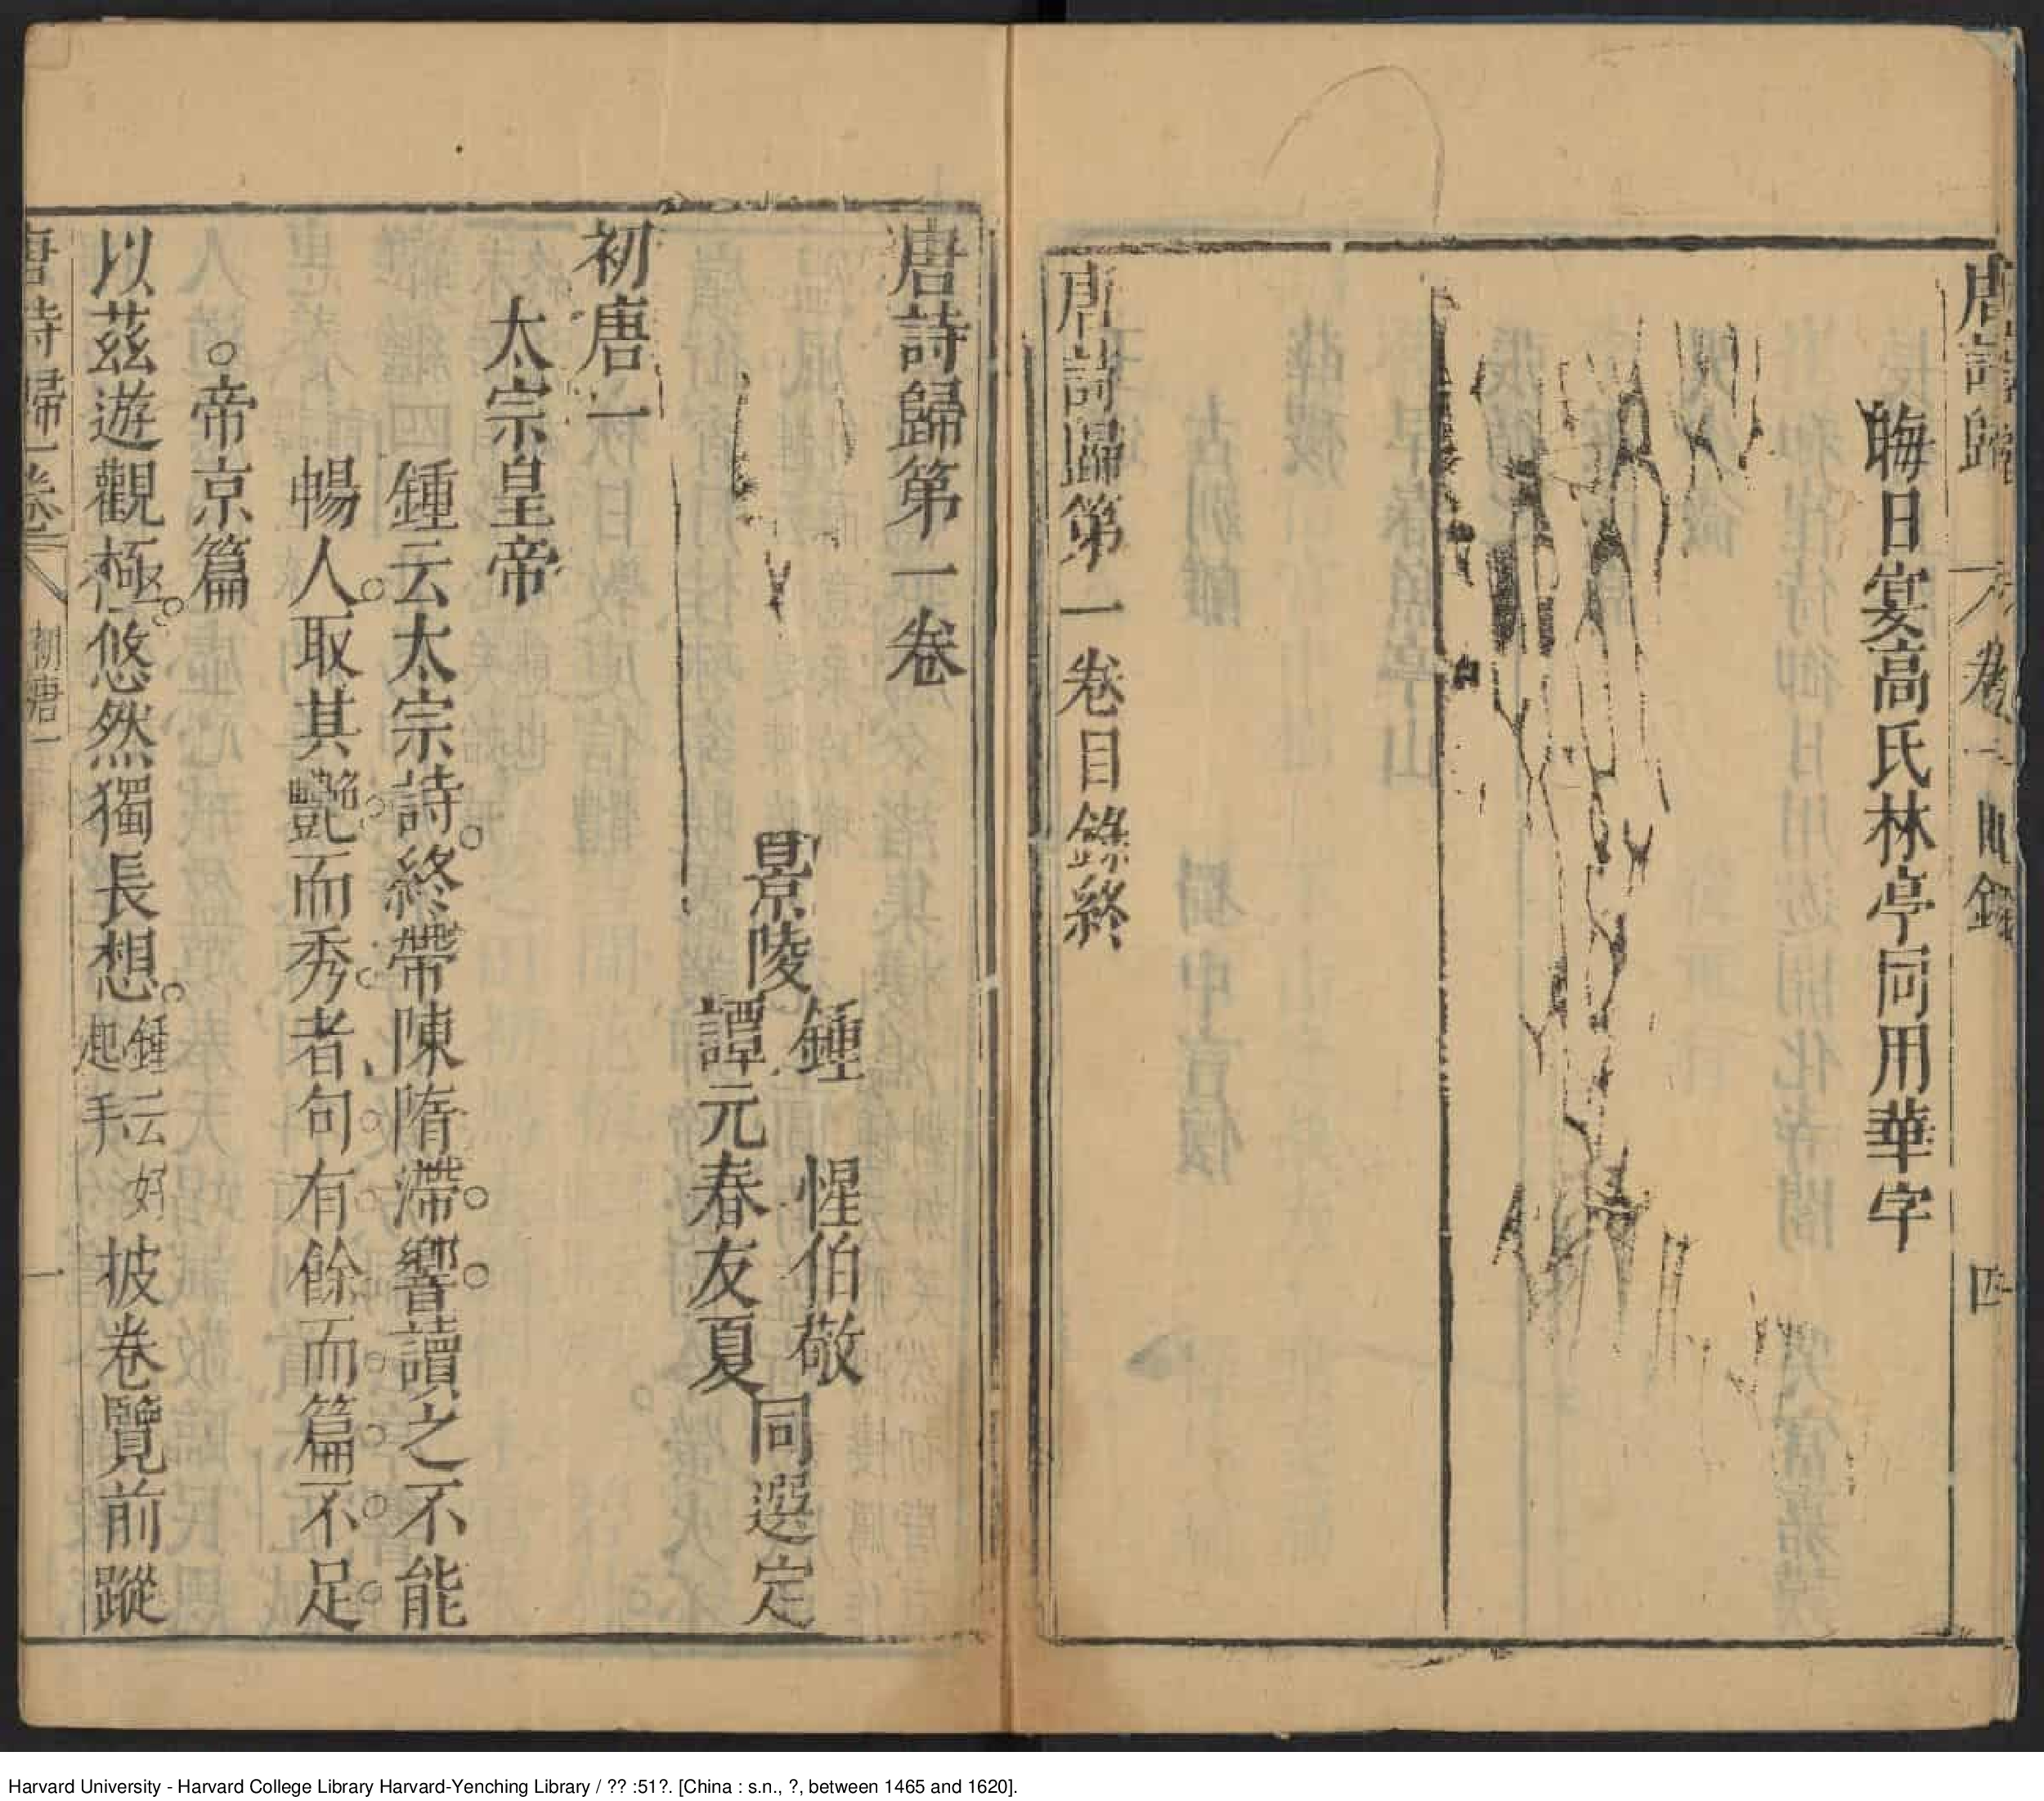 晦日宴高氏林亭同用華字
唐詩歸第一卷目錄終
唐詩歸第一卷
景陵
鍾惺伯敬
譚元春友夏
同選定
初唐一
太宗皇帝
鍾云太宗詩終帶陳隋滯響讀之不能
暢人取其艷而秀者句有餘而篇不足
帝京篇
以茲遊觀極悠然獨長想鍾云好起手披卷覽前蹤
唐詩歸一卷 初唐一 一
Harvard University - Harvard College Library Harvard-Yenching Library / ?? :51?. [China : s.n., ?, between 1465 and 1620].